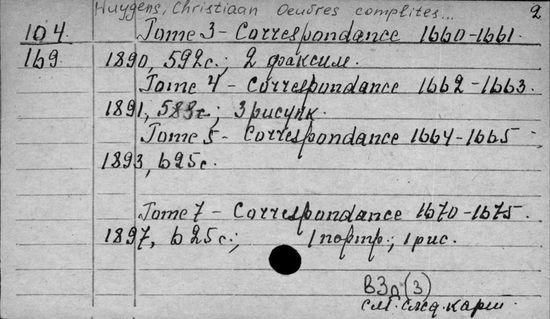 Huygens, Christiaan Oeuvres complites... 2
104. Tome 3 - Correspondance 1660-1661.
169. 1890, 592с.; 2 факсим.
Tome 4 - Correspondance 1662-1663.
1891, 583с; 3 рисунк.
Tome 5 - Correspondance 1664-1665
1893, 625с.
Tome 7 - Correspondance 1670-1675.
1897, 625с.; 1 портр; 1 рис.
(3)
см. след. карт